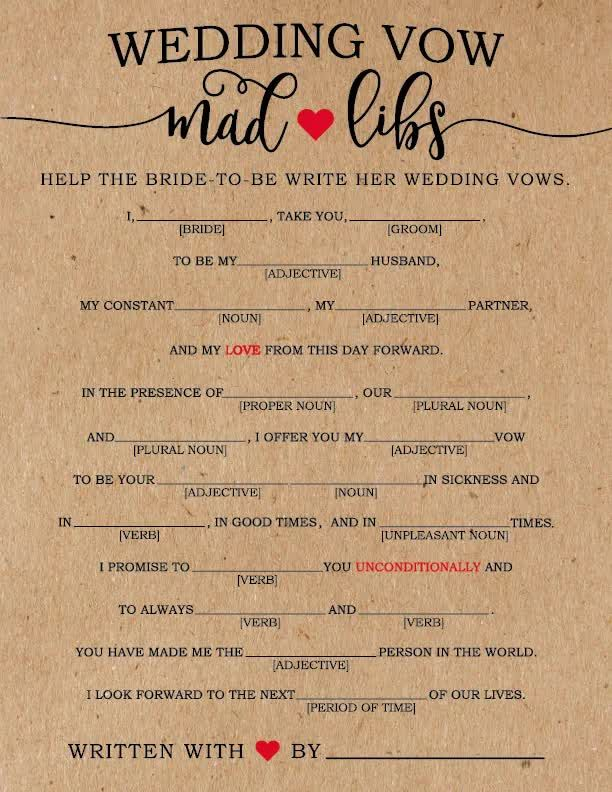 WEDDING VOW
mad libs
HELP THE BRIDE-TO-BE WRITE HER WEDDING VOWS.
I,____________, TAKE YOU,____________,
[BRIDE] [GROOM]
TO BE MY____________HUSBAND,
[ADJECTIVE]
MY CONSTANT____________, MY____________PARTNER,
[NOUN] [ADJECTIVE]
AND MY LOVE FROM THIS DAY FORWARD.
IN THE PRESENCE OF____________, OUR____________,
[PROPER NOUN] [PLURAL NOUN]
AND____________, I OFFER YOU MY____________VOW
[PLURAL NOUN] [ADJECTIVE]
TO BE YOUR____________ ____________,IN SICKNESS AND
[ADJECTIVE] [NOUN]
IN____________, IN GOOD TIMES, AND IN____________TIMES.
[VERB] [UNPLEASANT NOUN]
I PROMISE TO____________YOU UNCONDITIONALLY AND
[VERB]
TO ALWAYS____________AND____________.
[VERB] [VERB]
YOU HAVE MADE ME THE____________PERSON IN THE WORLD.
[ADJECTIVE]
I LOOK FORWARD TO THE NEXT____________OF OUR LIVES.
[PERIOD OF TIME]
WRITTEN WITH ♥ BY____________